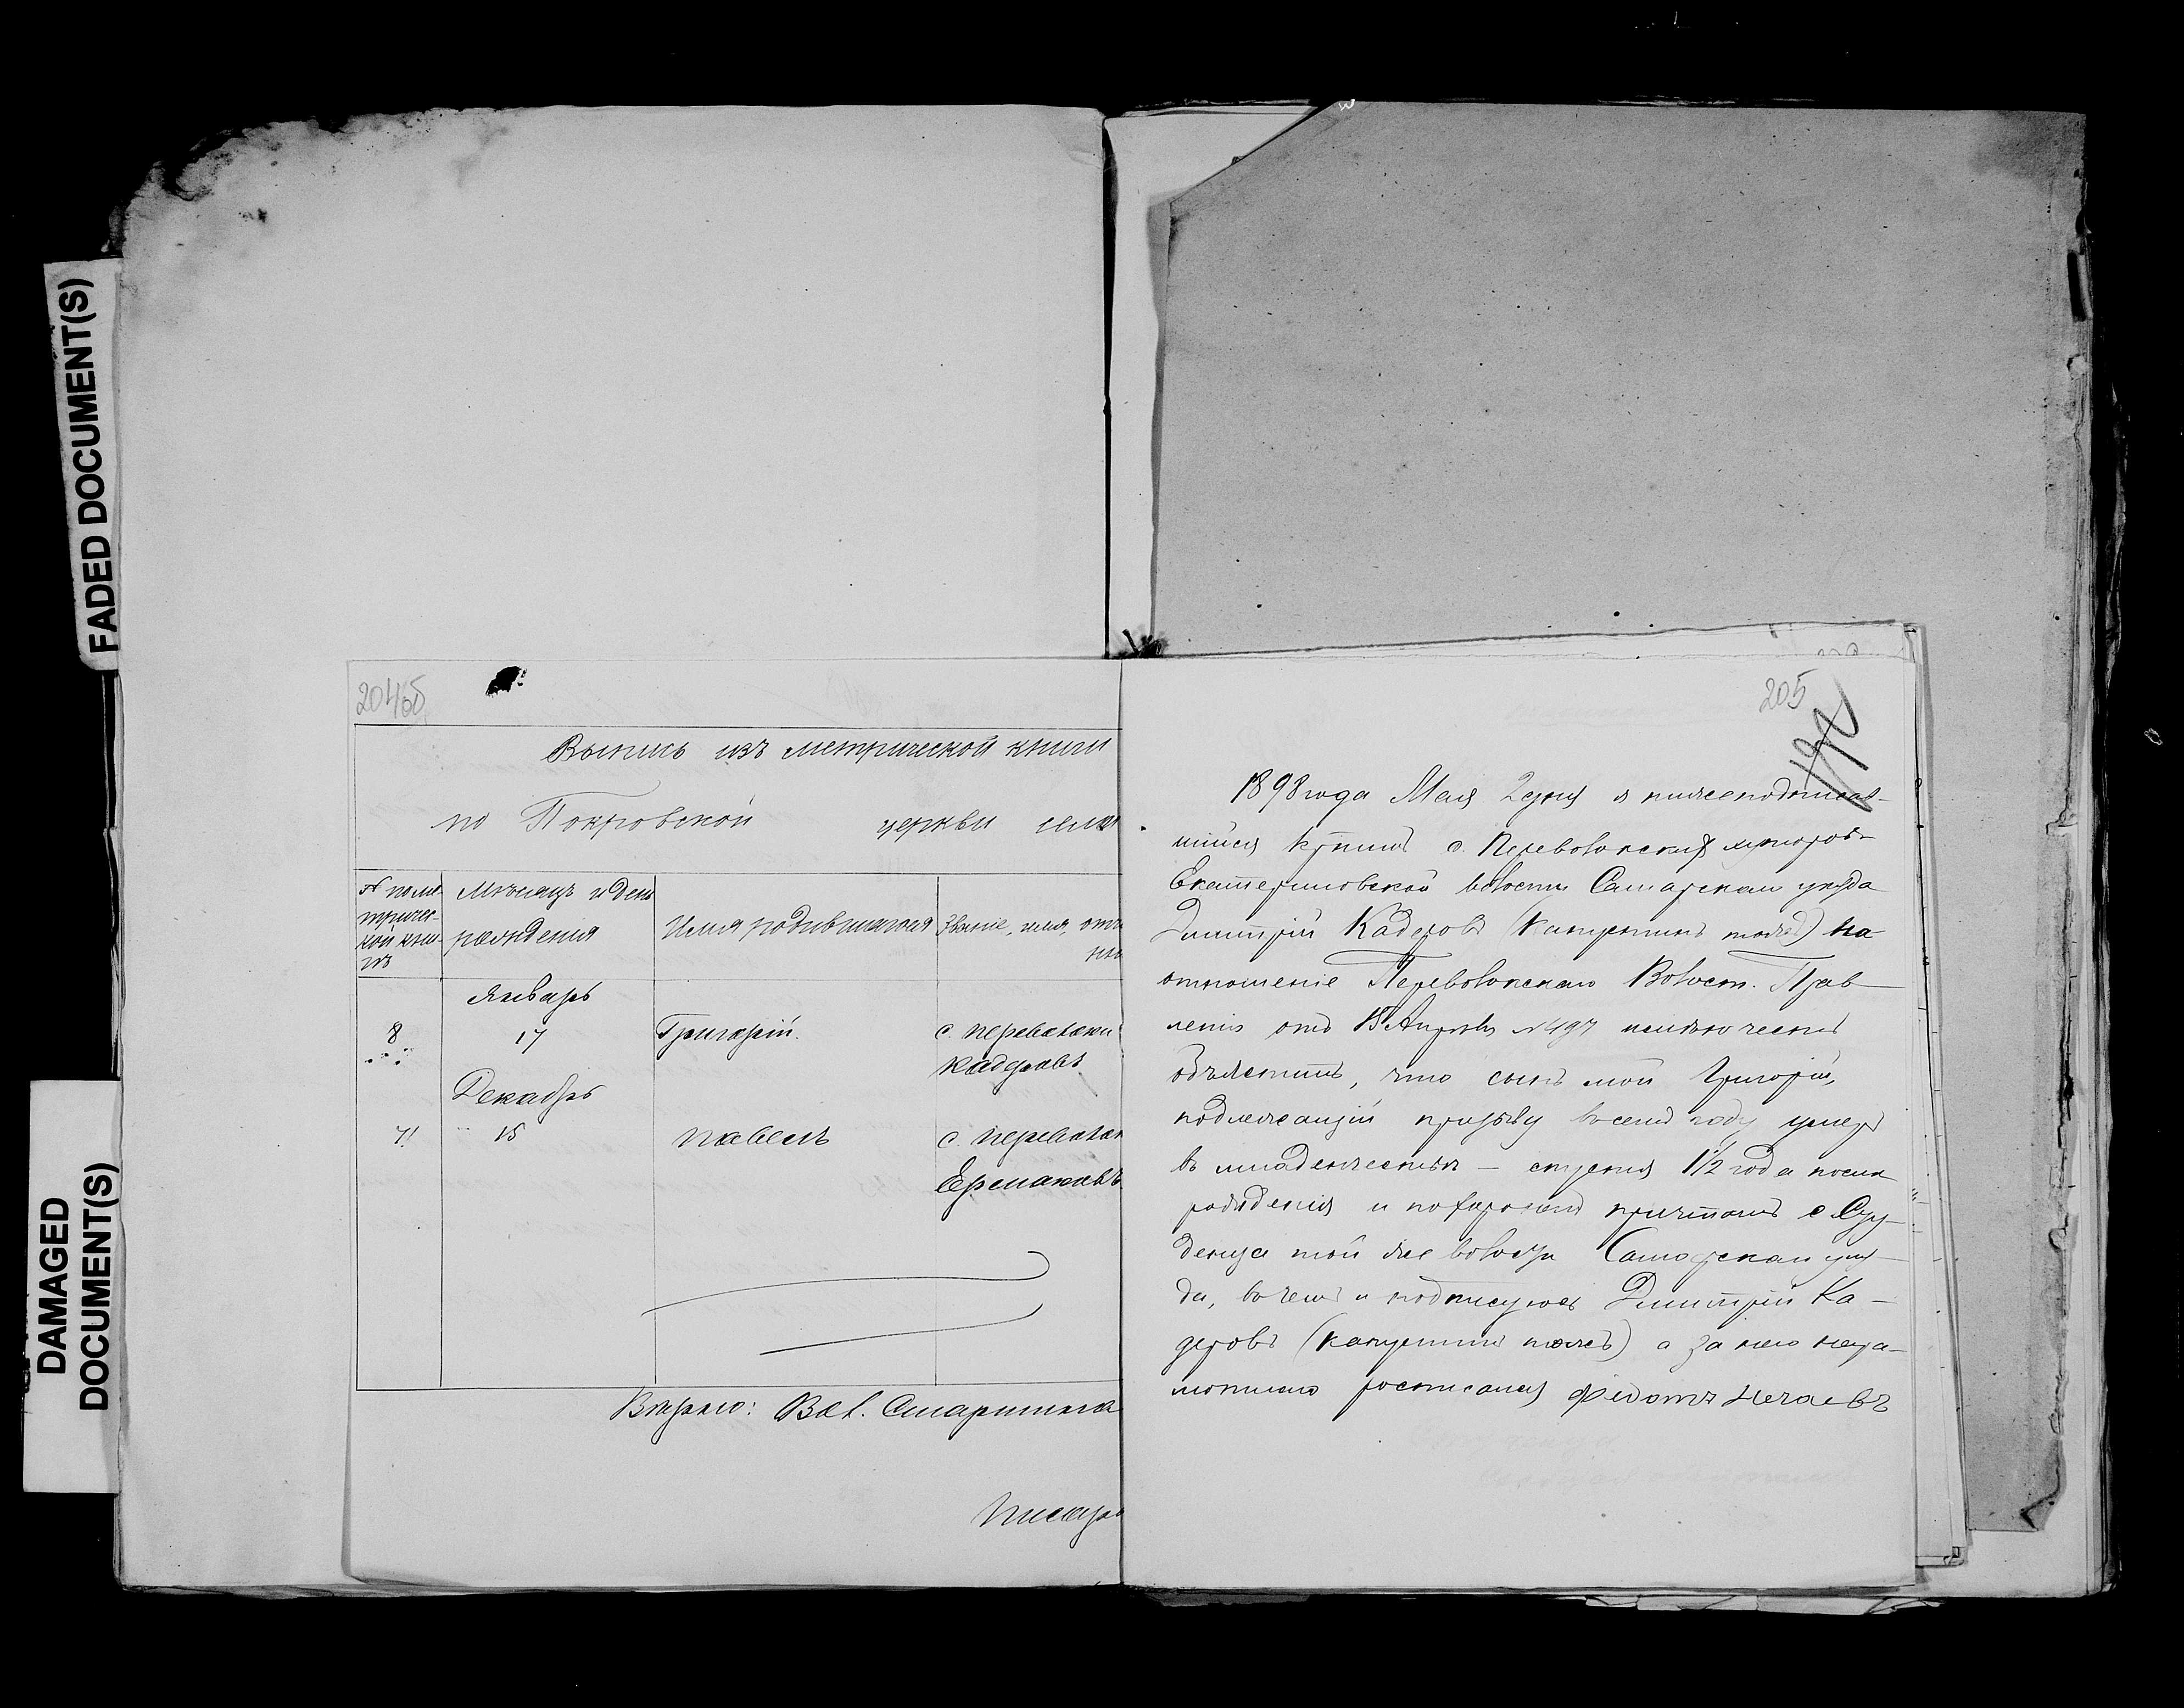 FADED DOCUMENT(S)
DAMAGED
DOCUMENT(S)
204об
Выпись изъ метрической книги
по Покровской церкви села
№ по ме-
тричес-
кой кни-
гѣ
Мѣсяцъ и день
рожденія
Имя родившагося
Званіе, имя, отч
Январь
8 17 Григорій. с. Переволоки
Кадеровъ
Декабрь
71 15 Павелъ с. Переволок
Ермаковъ
Вѣрно: Вол. Старшина
Писарь
205
1898 года Мая 2 дня я нижеподписав-
шійся с. Переволокскихъ хуторовъ
Екатериновской волости Самарскаго уѣзда
Димитрій Кадеровъ (Капустинъ тожъ) на
отношеніе Переволокскаго Волост. Прав
ленія отъ 15 Апрѣля № 497 честь
объяснить, что сынъ мой Григорій,
подлежащій призыву въ семъ году умеръ
въ младенчествѣ — спустя 1 1/2 года послѣ
рожденія и похороненъ причтомъ с. Сту-
денца той же волости Самарскаго уѣз
да, въ чемъ и подписуюсь Димитрій Ка-
деровъ (Капустинъ тожъ) а за него негра-
мотнаго росписался Федотъ Нечаевъ